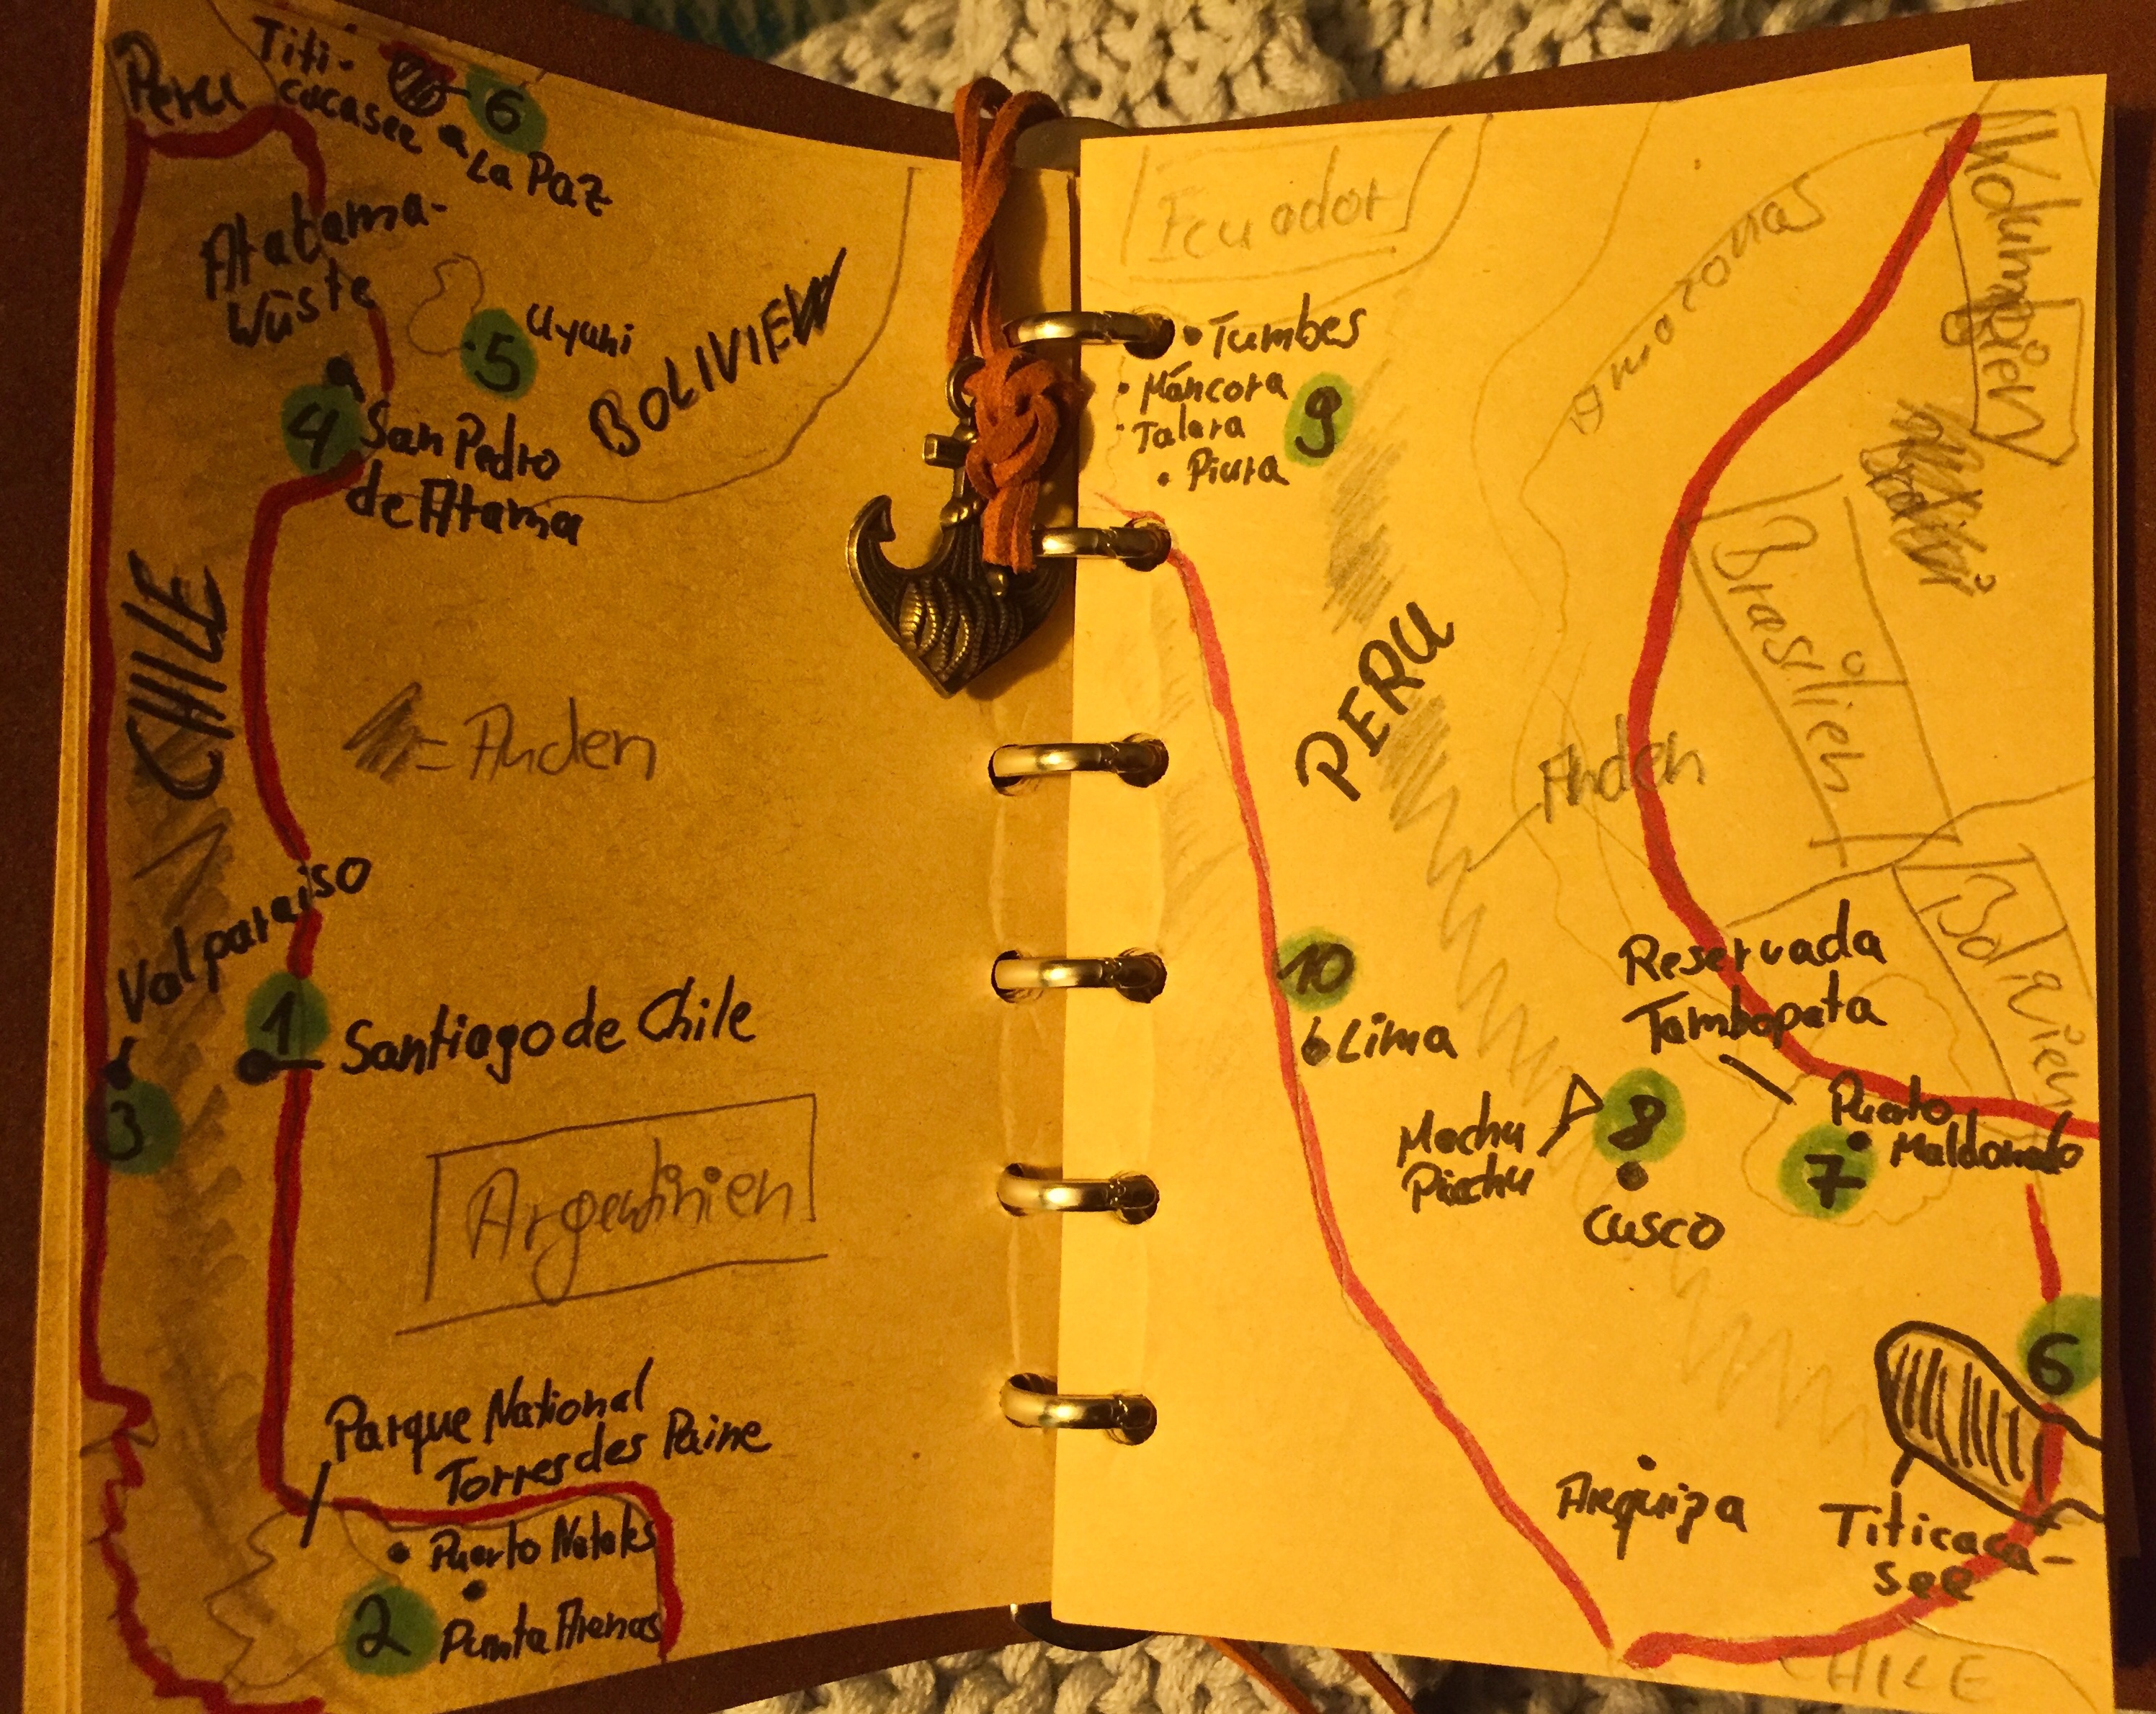 Peru
Titi-
cacasee
6
La Paz
Atacama-
Wüste
Uyuni
5
BOLIVIEN
4
San Pedro
de Atama
CHILE
= Anden
Valparaiso
1
Santiago de Chile
3
Argentinien
Parque National
Torres des Paine
Puerto Natals
2
Punta Arenas
Ecuador
Kolumbien
Amazonas
Tumbes
Máncora
9
Talara
Piura
Brasilien
PERU
Anden
Bolivien
Reservada
Tambopata
10
Lima
Machu
Picchu
8
Cusco
Puerto
Maldonado
7
6
Arequipa
Titicaca-
see
CHILE